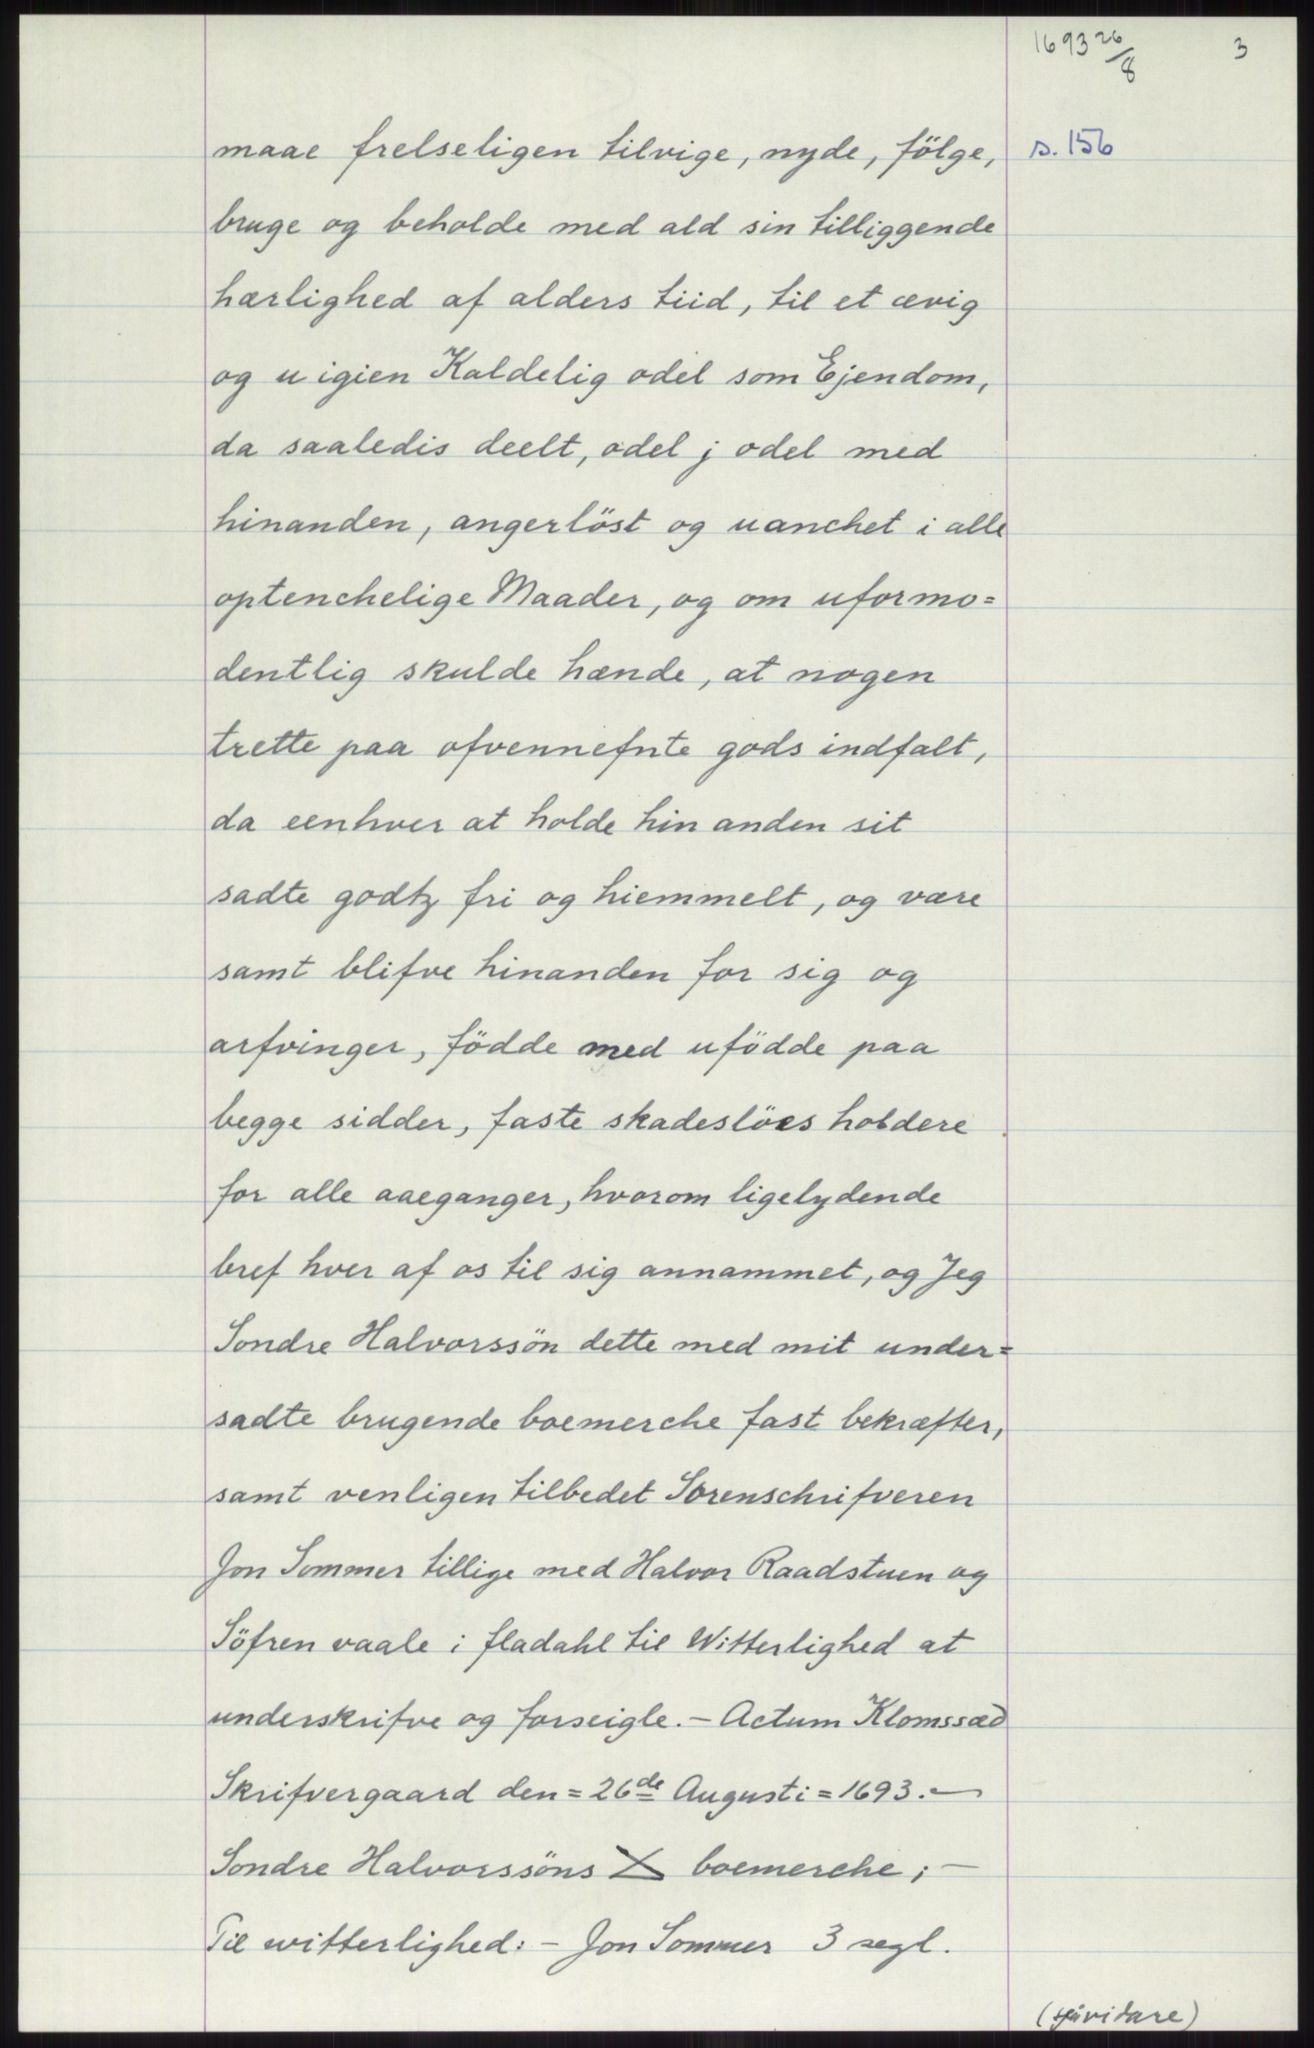 1693 26/8
3
maae frelseligen tilvige, nyde, fölge,
s. 156
bruge og beholde med ald sin tilliggende
hærlighed af alders tiid, til et ævig
og u igien Kaldelig odel som Ejendom,
da saaledis deelt, odel j odel med
hinanden, angerlöst og uanchet i alle
optenchelige Maader, og om uformo=
dentlig skulde hænde, at nogen
trette paa ofvennefnte gods indfalt,
da eenhver at holde hin anden sit
sadte godtz fri og hiemmelt, og være
samt blifve hinanden for sig og
arfvinger, födde med ufödde paa
begge sidder, faste skadeslöes holdere
for alle aaeganger, hvorom ligelydende
bref hver af os til sig annammet, og Jeg
Sondre Halvorssön dette med mit under=
sadte brugende boemerche fast bekræfter,
samt venligen tilbedet Sorenschrifveren
Jon Sommer tillige med Halvor Raadstuen og
Söfren vaale i fladahl til Witterlighed at
underskrifve og forseigle. — Actum Klomssæd
Skrifvergaard den = 26de Augusti = 1693. —
Sondre Halvorssöns boemerche; —
Til witterlighed: — Jon Sommer 3 segl.
(sjå vidare)